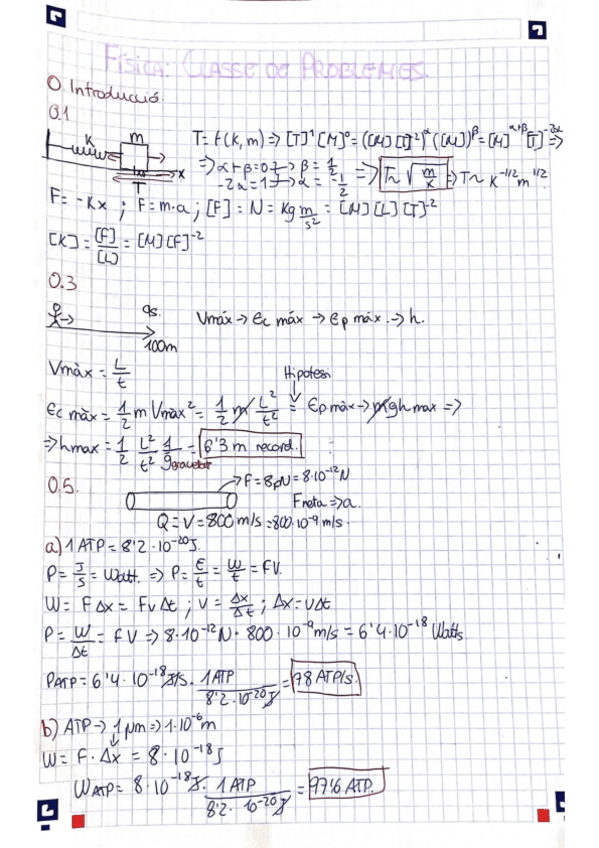 FÍSICA: CLASSE DE PROBLEMES.
0. Introducció.
0.1
K m x T
T = f(K, m) => [T]¹ [M]⁰ = ([M][T]⁻²)^α ([M])^β = [M]^α+β [T]^-2α =>
=> α + β = 0 → β = 1/2
-2α = 1 → α = -1/2 => T ~ √(m/K) => T ~ K^-1/2 m^1/2
F = -Kx ; F = m·a ; [F] = N = Kg m/s² = [M][L][T]⁻²
[K] = [F]/[L] = [M][F]⁻²
0.3
9s. 100m
Vmáx → Ec máx → Ep máx. → h.
Vmàx = L/t
Hipotesi
Ec màx = 1/2 m Vmax² = 1/2 m L²/t² = Ep màx → mgh max =>
=> hmax = 1/2 L²/t² 1/g gravetat = 6'3 m record.
0.5.
F = 8pN = 8·10⁻¹²N
Fneta → a.
Q = V = 800 m/s = 800·10⁻⁹ m/s.
a) 1 ATP = 8'2·10⁻²⁰ J.
P = J/s = Watt. => P = E/t = W/t = FV.
W = FΔx = FvΔt ; v = Δx/Δt ; Δx = vΔt
P = W/Δt = FV => 8·10⁻¹² N · 800 · 10⁻⁹ m/s = 6'4·10⁻¹⁸ Watts
PATP = 6'4·10⁻¹⁸ J/s. 1 ATP/8'2·10⁻²⁰ J = 78 ATP/s.
b) ATP → 1 μm => 1·10⁻⁶ m
W = F·Δx = 8·10⁻¹⁸ J
WATP = 8·10⁻¹⁸ J. 1 ATP/8'2·10⁻²⁰ J = 97'6 ATP.